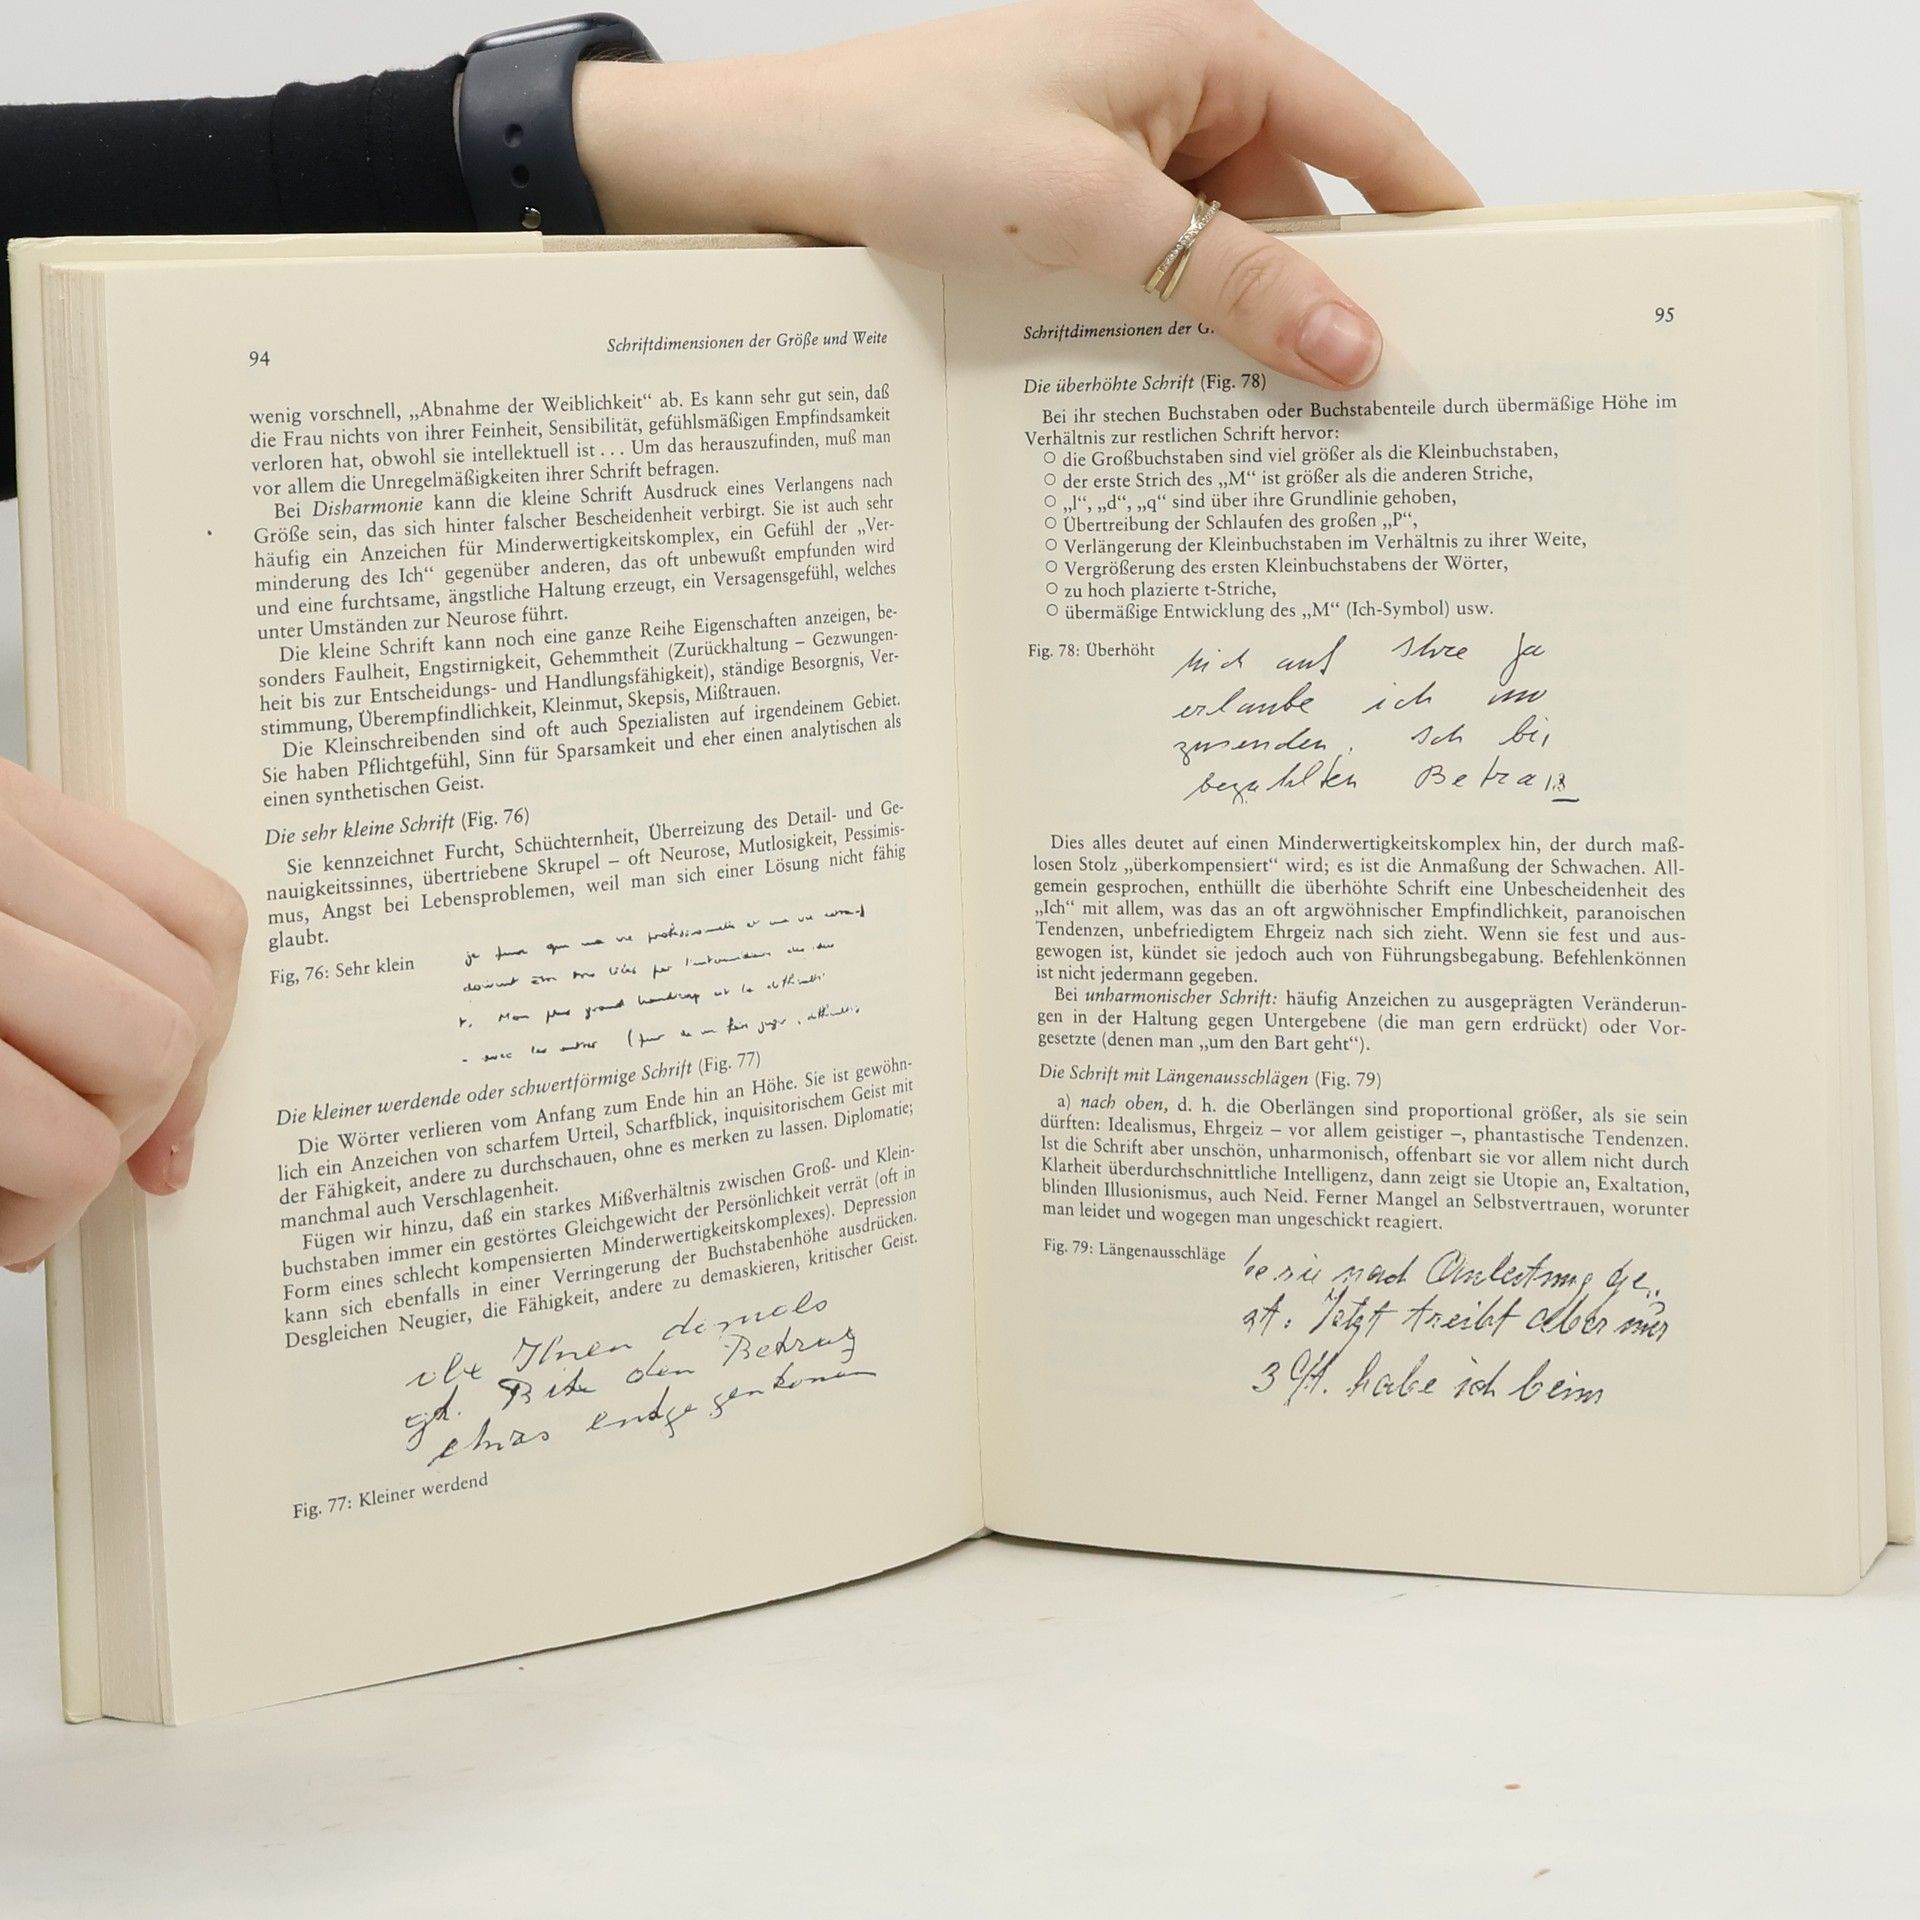 94
Schriftdimensionen der Größe und Weite
wenig vorschnell, „Abnahme der Weiblichkeit“ ab. Es kann sehr gut sein, daß
die Frau nichts von ihrer Feinheit, Sensibilität, gefühlsmäßigen Empfindsamkeit
verloren hat, obwohl sie intellektuell ist ... Um das herauszufinden, muß man
vor allem die Unregelmäßigkeiten ihrer Schrift befragen.
Bei Disharmonie kann die kleine Schrift Ausdruck eines Verlangens nach
Größe sein, das sich hinter falscher Bescheidenheit verbirgt. Sie ist auch sehr
häufig ein Anzeichen für Minderwertigkeitskomplex, ein Gefühl der „Ver-
minderung des Ich“ gegenüber anderen, das oft unbewußt empfunden wird
und eine furchtsame, ängstliche Haltung erzeugt, ein Versagensgefühl, welches
unter Umständen zur Neurose führt.
Die kleine Schrift kann noch eine ganze Reihe Eigenschaften anzeigen, be-
sonders Faulheit, Engstirnigkeit, Gehemmtheit (Zurückhaltung – Gezwungen-
heit bis zur Entscheidungs- und Handlungsfähigkeit), ständige Besorgnis, Ver-
stimmung, Überempfindlichkeit, Kleinmut, Skepsis, Mißtrauen.
Die Kleinschreibenden sind oft auch Spezialisten auf irgendeinem Gebiet.
Sie haben Pflichtgefühl, Sinn für Sparsamkeit und eher einen analytischen als
einen synthetischen Geist.
Die sehr kleine Schrift (Fig. 76)
Sie kennzeichnet Furcht, Schüchternheit, Überreizung des Detail- und Ge-
nauigkeitssinnes, übertriebene Skrupel – oft Neurose, Mutlosigkeit, Pessimis-
mus, Angst bei Lebensproblemen, weil man sich einer Lösung nicht fähig
glaubt.
Fig, 76: Sehr klein
je que ma vie professionnelle et ma vie
doivent être par l'intermédiaire des
Mon plus grand handicap est la
avec les autres (
Die kleiner werdende oder schwertförmige Schrift (Fig. 77)
Die Wörter verlieren vom Anfang zum Ende hin an Höhe. Sie ist gewöhn-
lich ein Anzeichen von scharfem Urteil, Scharfblick, inquisitorischem Geist mit
der Fähigkeit, andere zu durchschauen, ohne es merken zu lassen. Diplomatie;
manchmal auch Verschlagenheit.
Fügen wir hinzu, daß ein starkes Mißverhältnis zwischen Groß- und Klein-
buchstaben immer ein gestörtes Gleichgewicht der Persönlichkeit verrät (oft in
Form eines schlecht kompensierten Minderwertigkeitskomplexes). Depression
kann sich ebenfalls in einer Verringerung der Buchstabenhöhe ausdrücken.
Desgleichen Neugier, die Fähigkeit, andere zu demaskieren, kritischer Geist.
Ihnen damals
Bitte den Betrag
etwas entgegenkommen
Fig. 77: Kleiner werdend
Schriftdimensionen der G
95
Die überhöhte Schrift (Fig. 78)
Bei ihr stechen Buchstaben oder Buchstabenteile durch übermäßige Höhe im
Verhältnis zur restlichen Schrift hervor:
○ die Großbuchstaben sind viel größer als die Kleinbuchstaben,
○ der erste Strich des „M“ ist größer als die anderen Striche,
○ „l“, „d“, „q“ sind über ihre Grundlinie gehoben,
○ Übertreibung der Schlaufen des großen „P“,
○ Verlängerung der Kleinbuchstaben im Verhältnis zu ihrer Weite,
○ Vergrößerung des ersten Kleinbuchstabens der Wörter,
○ zu hoch plazierte t-Striche,
○ übermäßige Entwicklung des „M“ (Ich-Symbol) usw.
Fig. 78: Überhöht
mich auf Ihre Ja
erlaube ich
zusenden. Ich bi
bezahlten Betra
Dies alles deutet auf einen Minderwertigkeitskomplex hin, der durch maß-
losen Stolz „überkompensiert“ wird; es ist die Anmaßung der Schwachen. All-
gemein gesprochen, enthüllt die überhöhte Schrift eine Unbescheidenheit des
„Ich“ mit allem, was das an oft argwöhnischer Empfindlichkeit, paranoischen
Tendenzen, unbefriedigtem Ehrgeiz nach sich zieht. Wenn sie fest und aus-
gewogen ist, kündet sie jedoch auch von Führungsbegabung. Befehlenkönnen
ist nicht jedermann gegeben.
Bei unharmonischer Schrift: häufig Anzeichen zu ausgeprägten Veränderun-
gen in der Haltung gegen Untergebene (die man gern erdrückt) oder Vor-
gesetzte (denen man „um den Bart geht“).
Die Schrift mit Längenausschlägen (Fig. 79)
a) nach oben, d. h. die Oberlängen sind proportional größer, als sie sein
dürften: Idealismus, Ehrgeiz – vor allem geistiger –, phantastische Tendenzen.
Ist die Schrift aber unschön, unharmonisch, offenbart sie vor allem nicht durch
Klarheit überdurchschnittliche Intelligenz, dann zeigt sie Utopie an, Exaltation,
blinden Illusionismus, auch Neid. Ferner Mangel an Selbstvertrauen, worunter
man leidet und wogegen man ungeschickt reagiert.
Fig. 79: Längenausschläge
be sie nach Anleitung ge
at. Jetzt treibt aber mir
3 habe ich beim